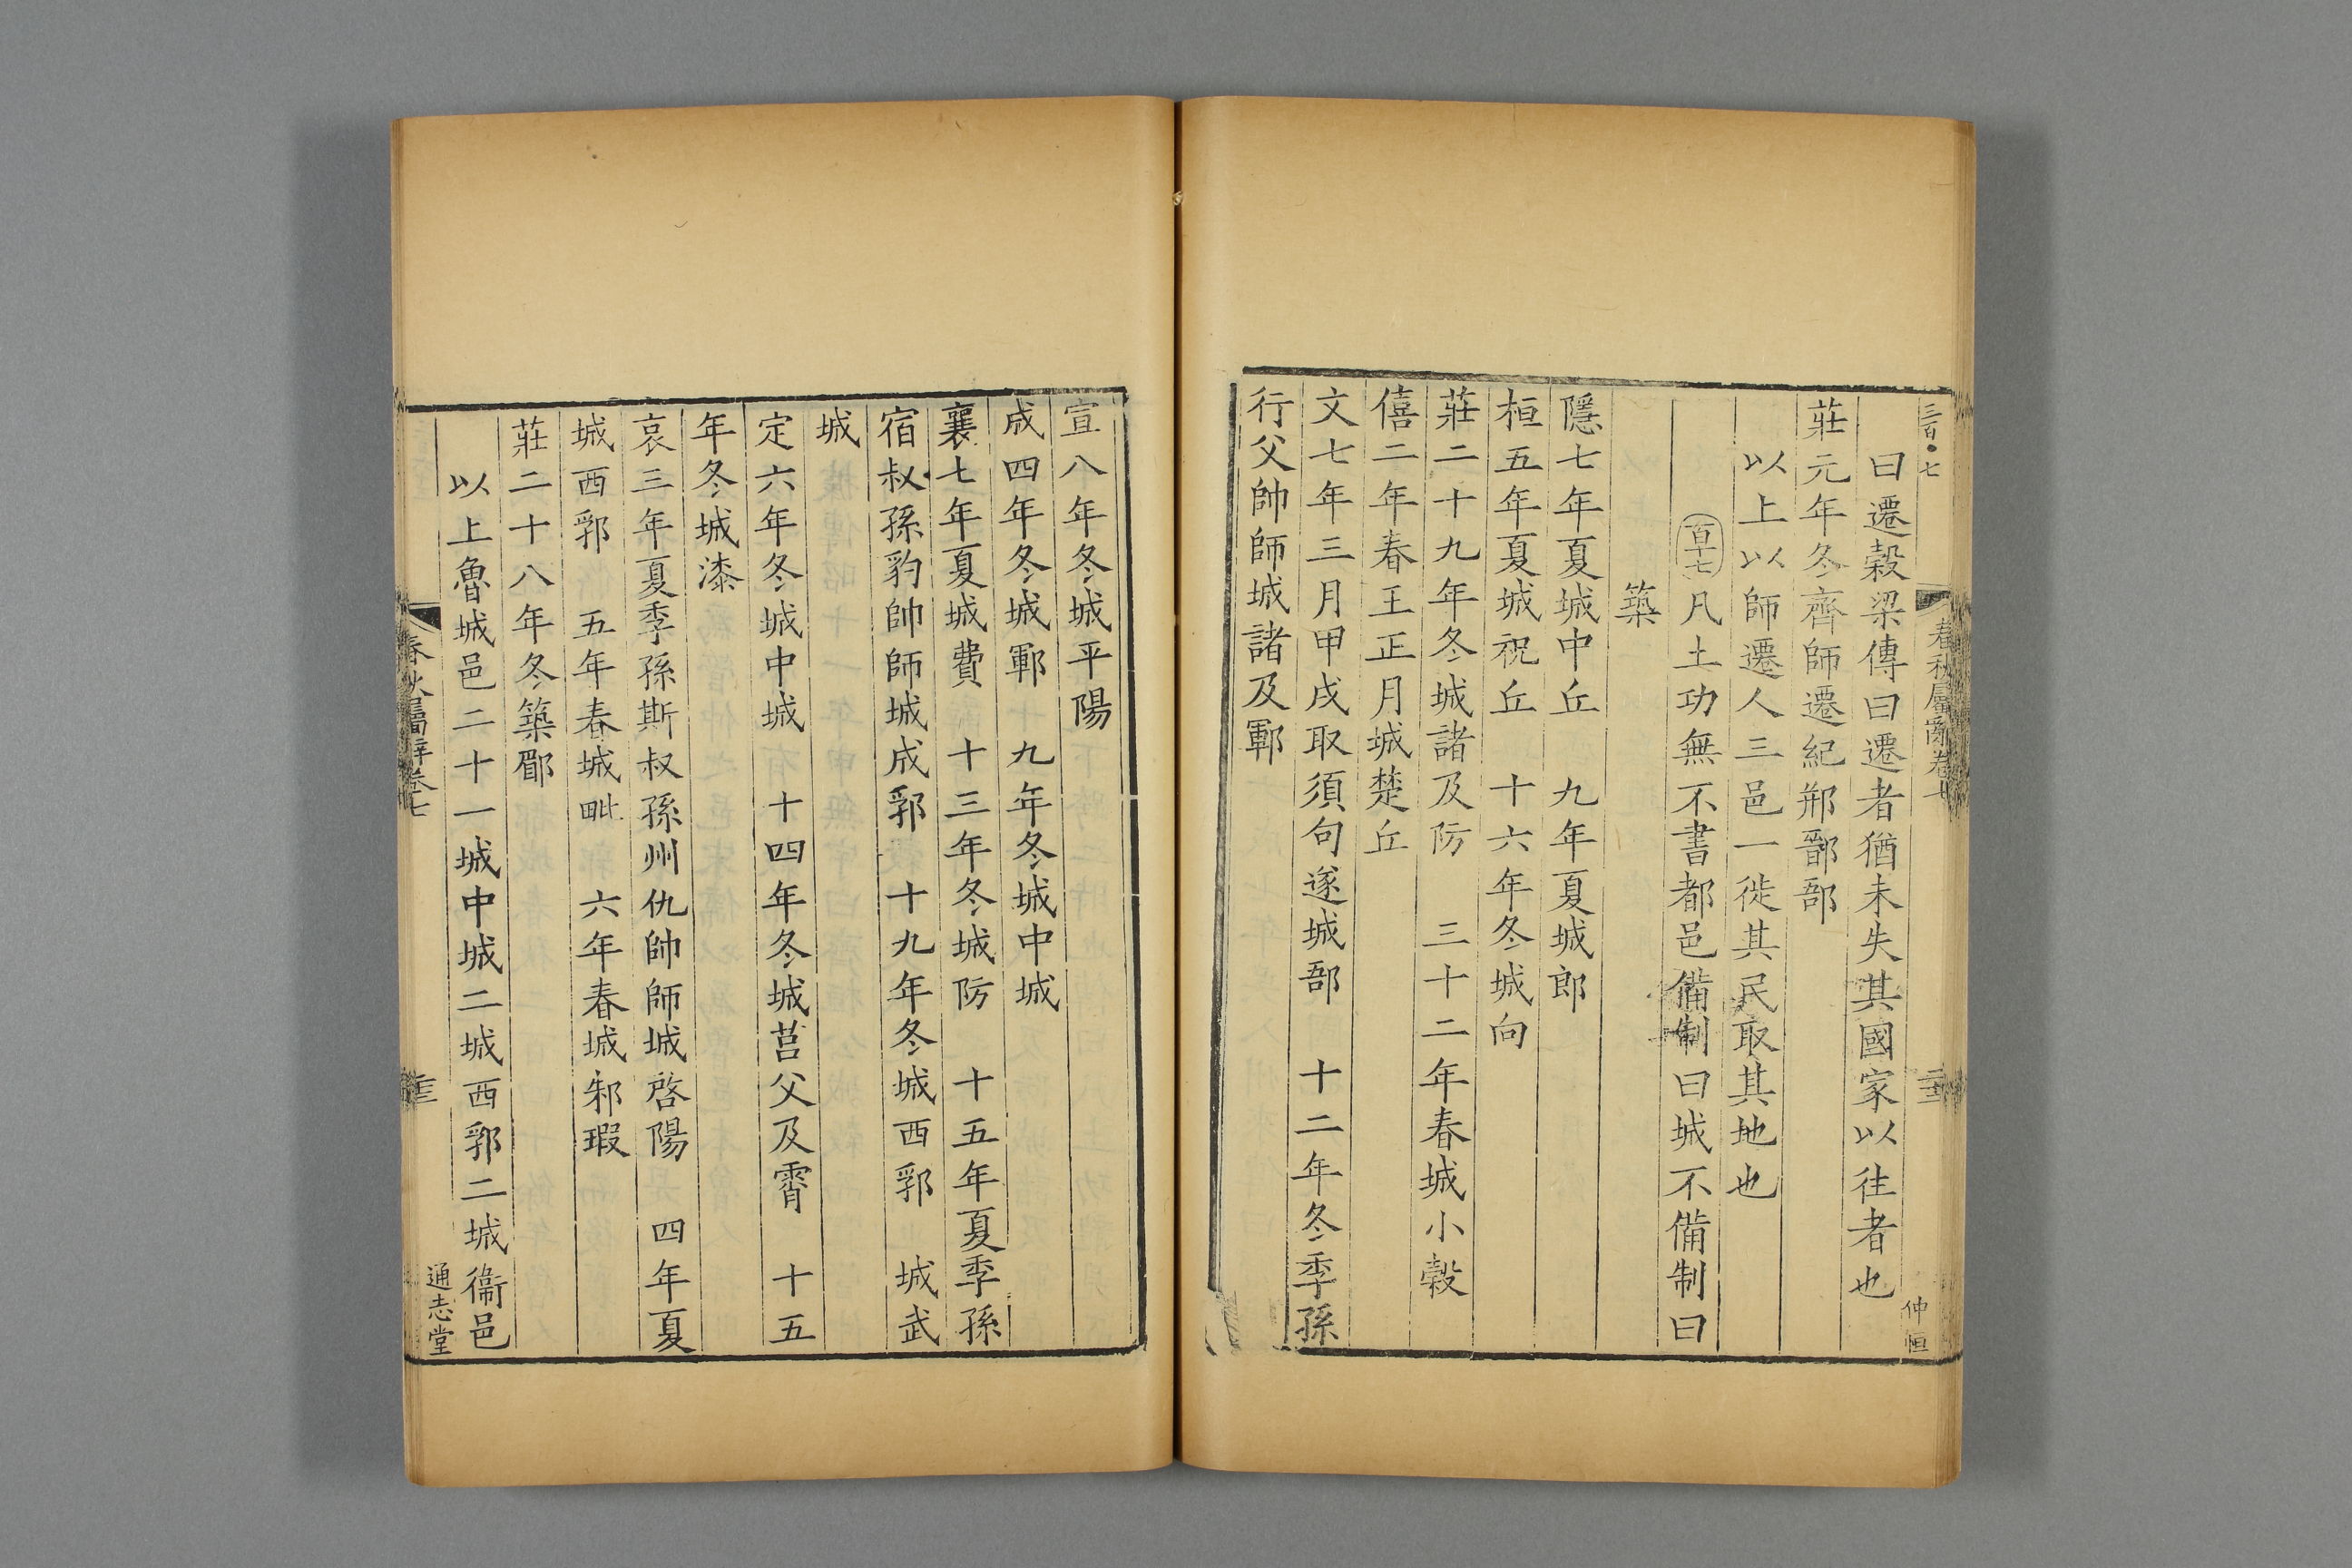 三百●七
春秋屬辭卷七
仲恒
曰遷穀梁傳曰遷者猶未失其國家以往者也
莊元年冬齊師遷紀郱鄑郚
以上以師遷人三邑一徙其民取其地也
百十七凡土功無不書都邑備制曰城不備制曰
築
隱七年夏城中丘　九年夏城郎
桓五年夏城祝丘　十六年冬城向
莊二十九年冬城諸及防　三十二年春城小穀
僖二年春王正月城楚丘
文七年三月甲戌取須句遂城郚　十二年冬季孫
行父帥師城諸及鄆
宣八年冬城平陽
成四年冬城鄆　九年冬城中城
襄七年夏城費　十三年冬城防　十五年夏季孫
宿叔孫豹帥師城成郛　十九年冬城西郛　城武
城
定六年冬城中城　十四年冬城莒父及霄　十五
年冬城漆
哀三年夏季孫斯叔孫州仇帥師城啓陽　四年夏
城西郛　五年春城毗　六年春城邾瑕
莊二十八年冬築郿
以上魯城邑二十一城中城二城西郛二城衞邑
春秋屬辭卷七
通志堂